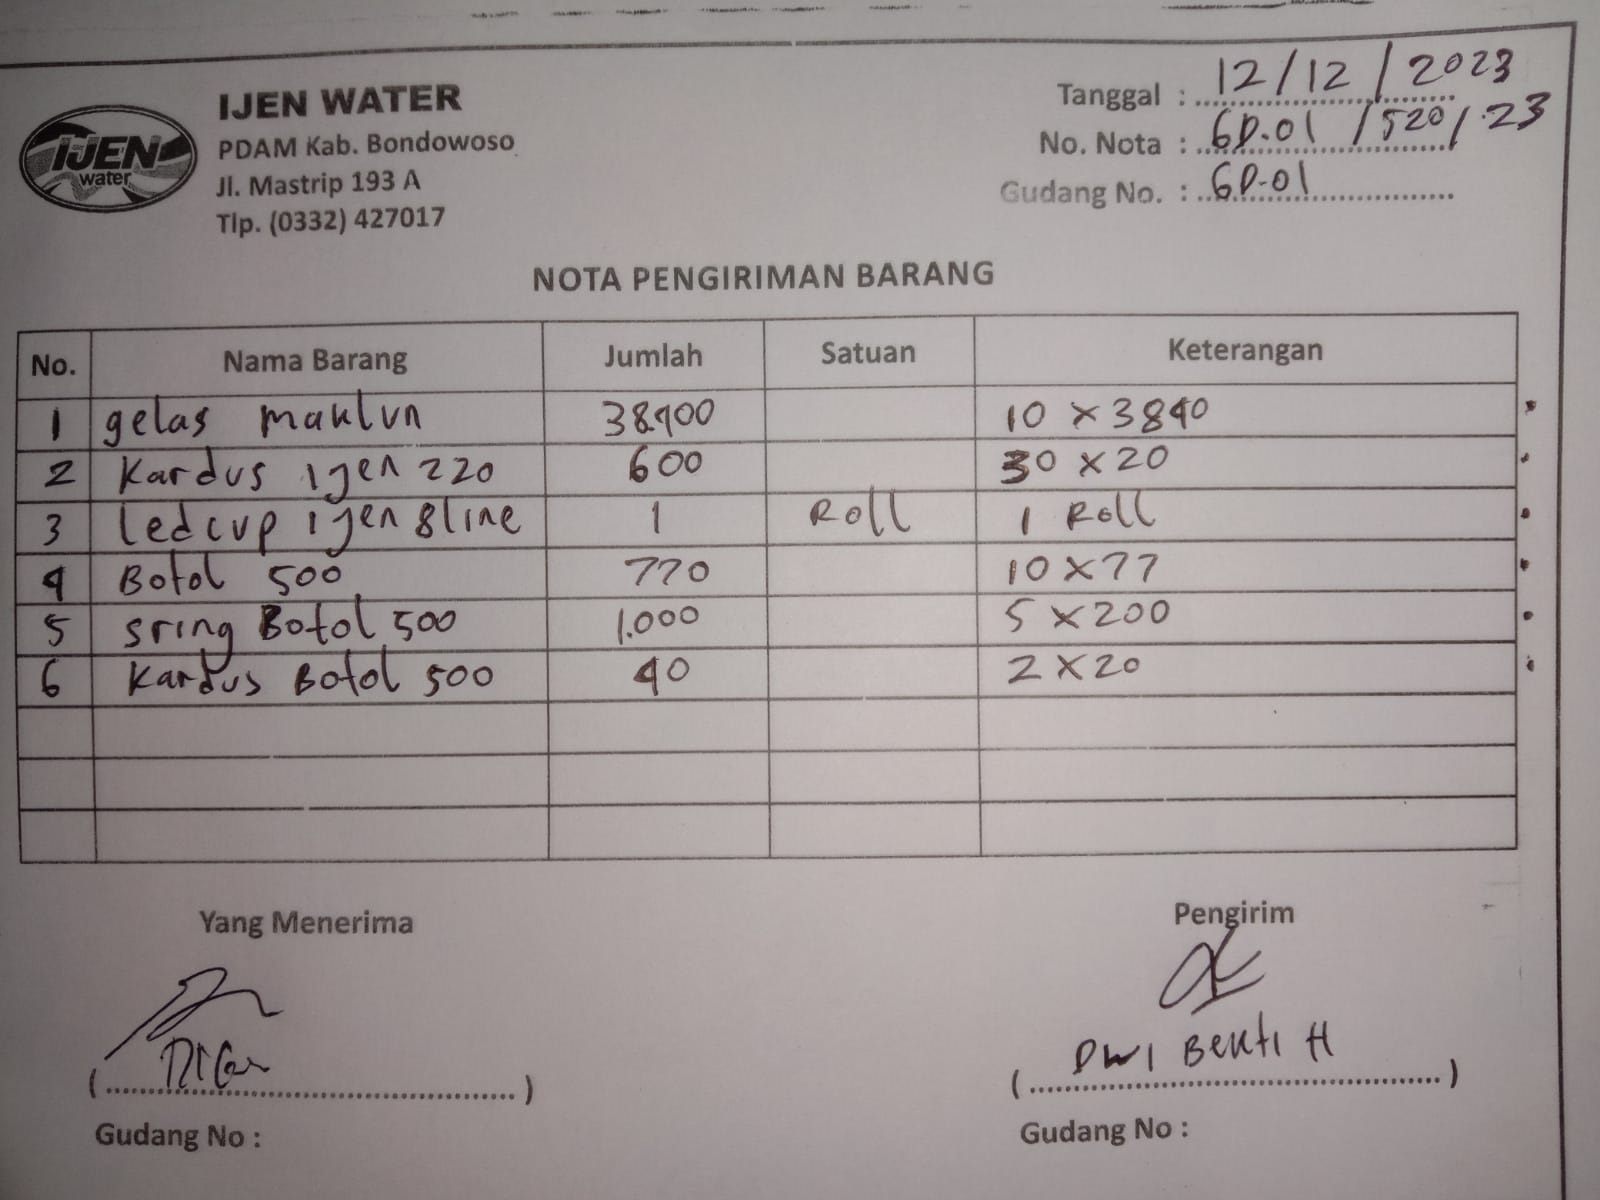 IJEN WATER
PDAM Kab. Bondowoso
Jl. Mastrip 193 A
Tlp. (0332) 427017
IJEN
water
Tanggal : 12/12/2023
No. Nota : GD.01/520/.23
Gudang No. : GD.01
NOTA PENGIRIMAN BARANG
No. Nama Barang Jumlah Satuan Keterangan
1 gelas maklun 38.400 10 x 3840
2 Kardus Ijen 220 600 30 x 20
3 Ledcup Ijen 8line 1 Roll 1 Roll
4 Botol 500 770 10 x 77
5 sring Botol 500 1.000 5 x 200
6 Kardus Botol 500 40 2 x 20
Yang Menerima Pengirim
(....................) (DWI BEKTI H)
Gudang No : Gudang No :